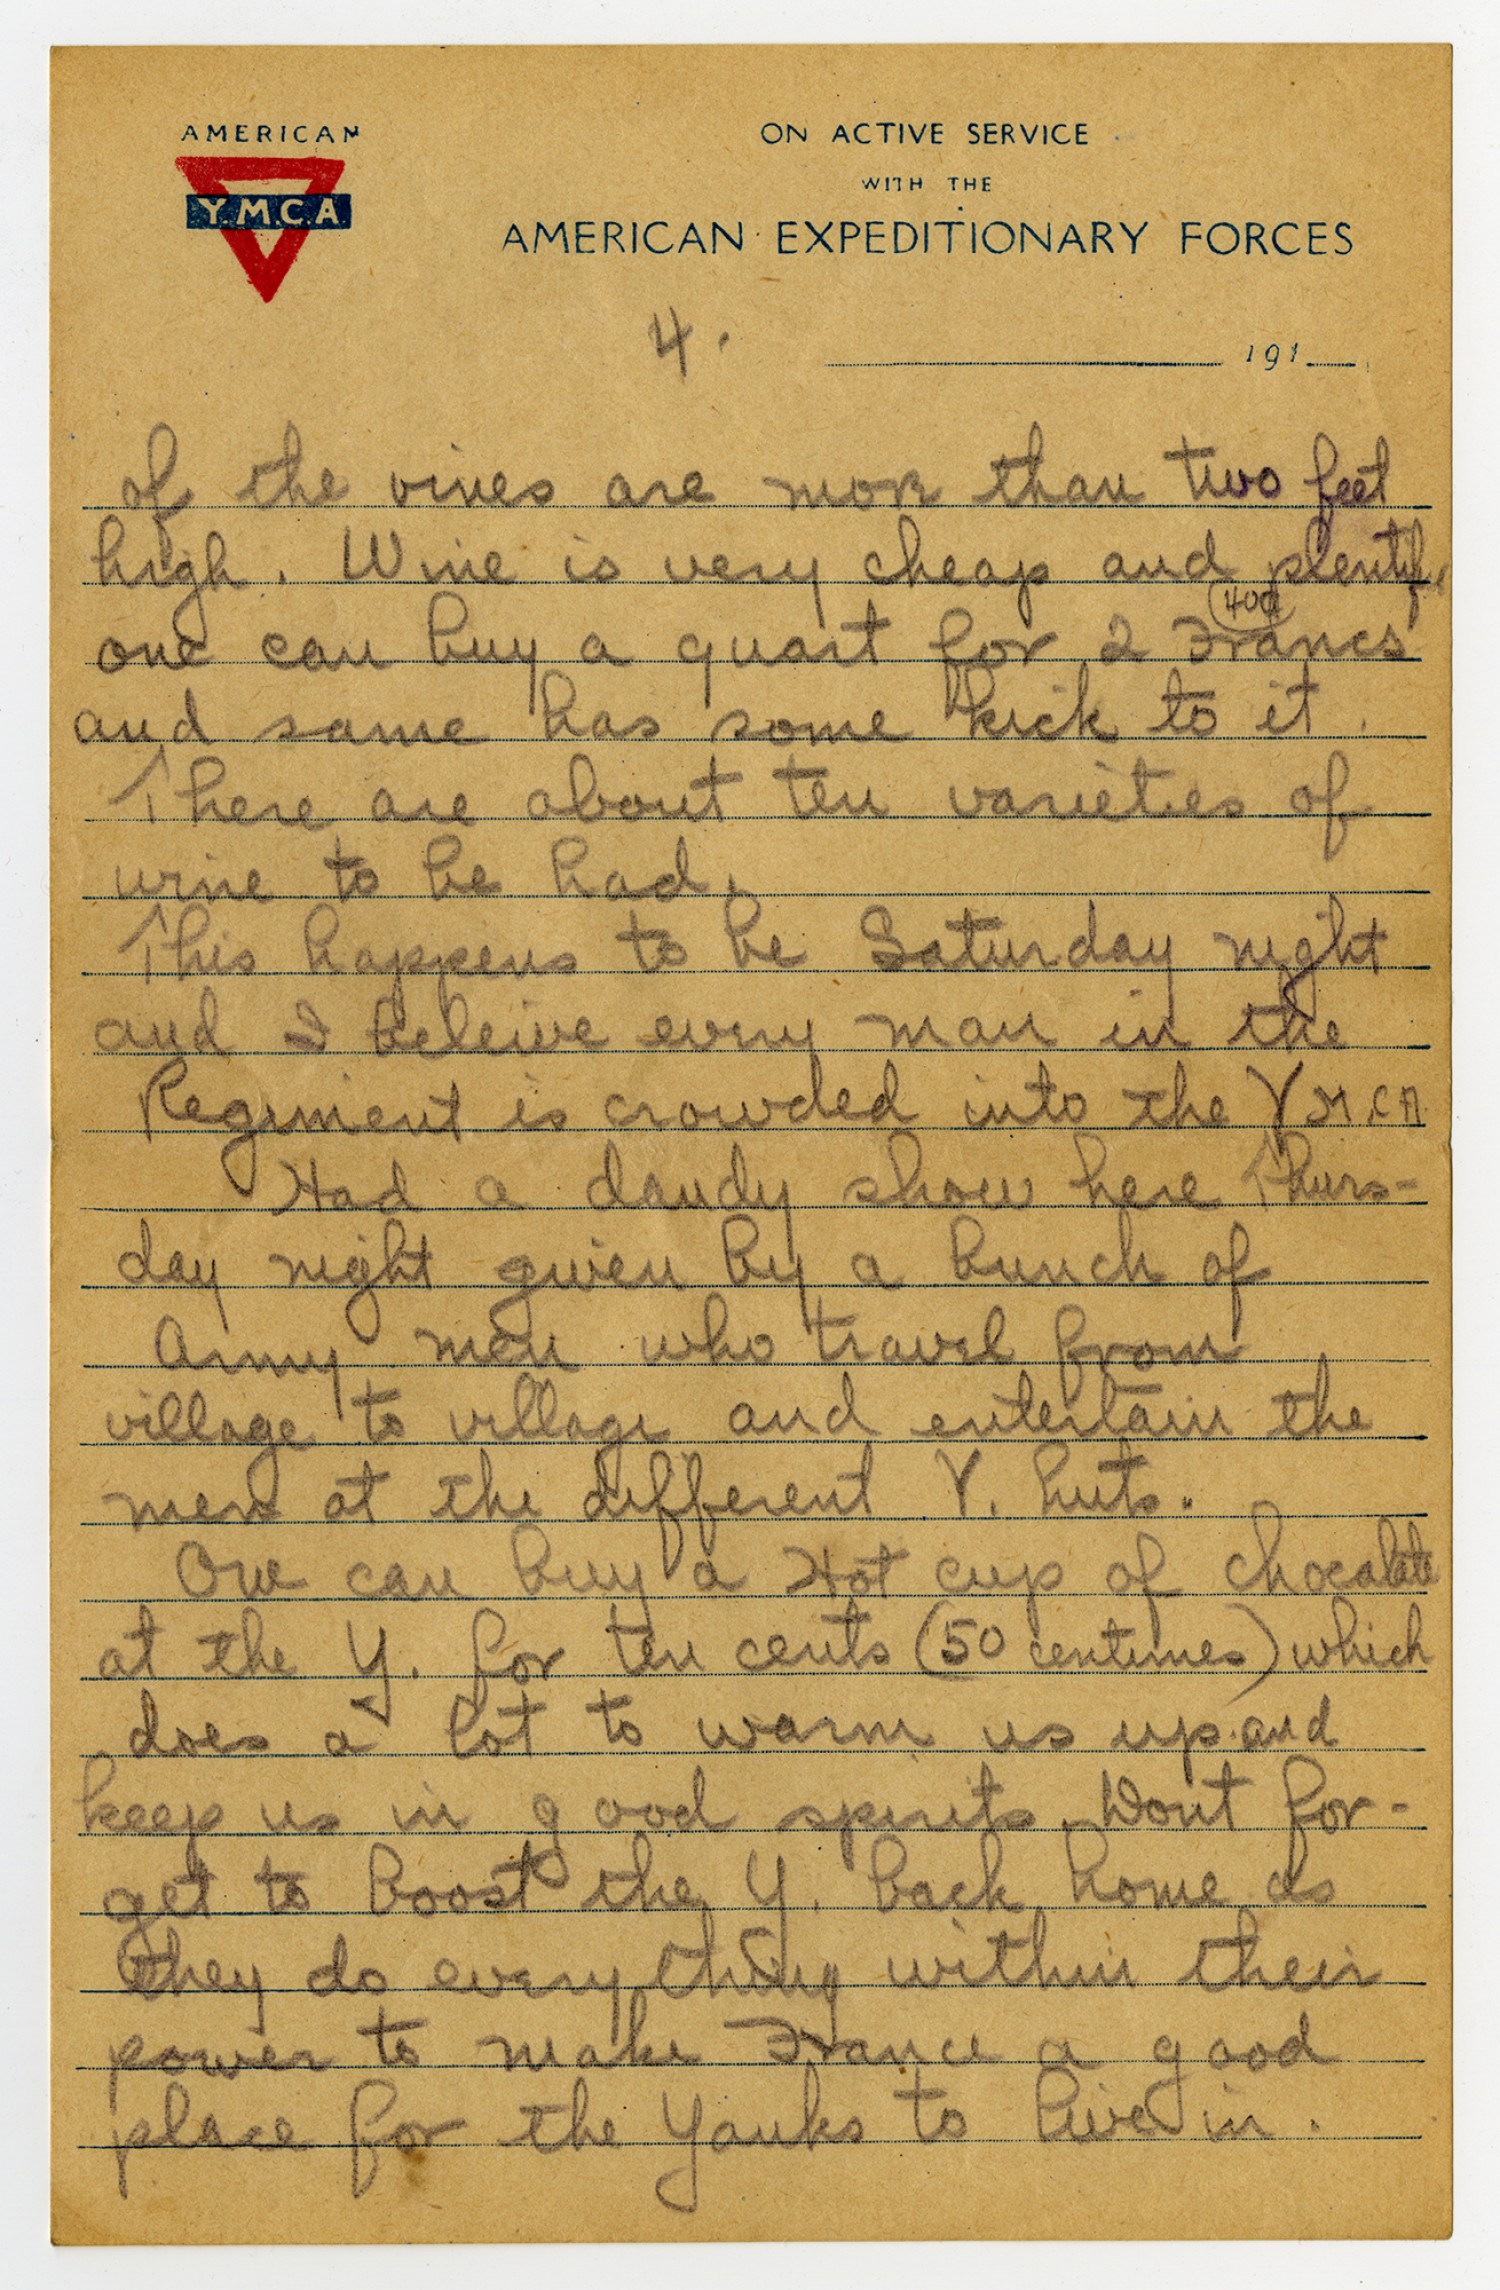 AMERICAN
Y.M.C.A.
ON ACTIVE SERVICE
WITH THE
AMERICAN EXPEDITIONARY FORCES
4.
191
of the vines are more than two feet
high. Wine is very cheap and plentiful
(40¢)
one can buy a quart for 2 Francs
and same has some kick to it.
There are about ten varieties of
wine to be had.
This happens to be Saturday night
and I beleive every man in the
Regiment is crowded into the Y.M.C.A.
Had a dandy show here Thurs-
day night given by a bunch of
Army men who travel from
village to village and entertain the
men at the different Y. huts.
One can buy a Hot cup of chocalate
at the Y. for ten cents (50 centimes) which
does a lot to warm us up and
keep us in good spirits. Dont for-
get to boost the Y. back home as
they do everything within their
power to make France a good
place for the Yanks to live in.